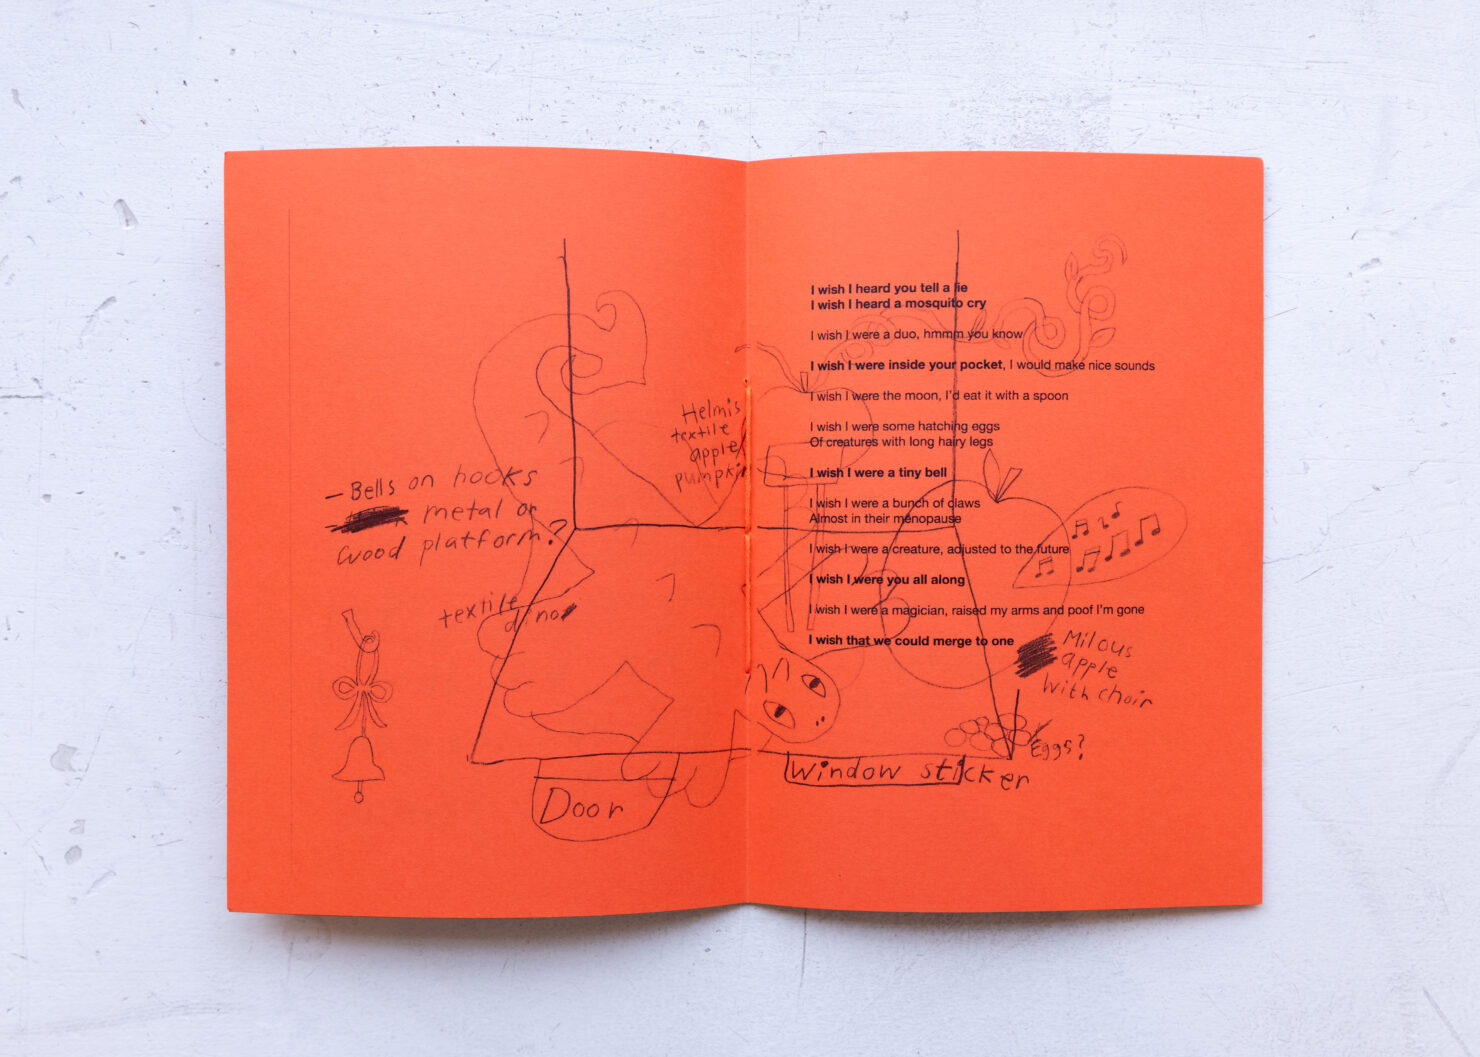 Helmis
textile
apple/
pumpkin
– Bells on hooks
metal or
wood platform?
textile
dino
Door
I wish I heard you tell a lie
I wish I heard a mosquito cry
I wish I were a duo, hmmm you know
I wish I were inside your pocket, I would make nice sounds
I wish I were the moon, I'd eat it with a spoon
I wish I were some hatching eggs
Of creatures with long hairy legs
I wish I were a tiny bell
I wish I were a bunch of claws
Almost in their menopause
I wish I were a creature, adjusted to the future
I wish I were you all along
I wish I were a magician, raised my arms and poof I'm gone
I wish that we could merge to one
Milous
apple
with choir
Eggs?
Window sticker